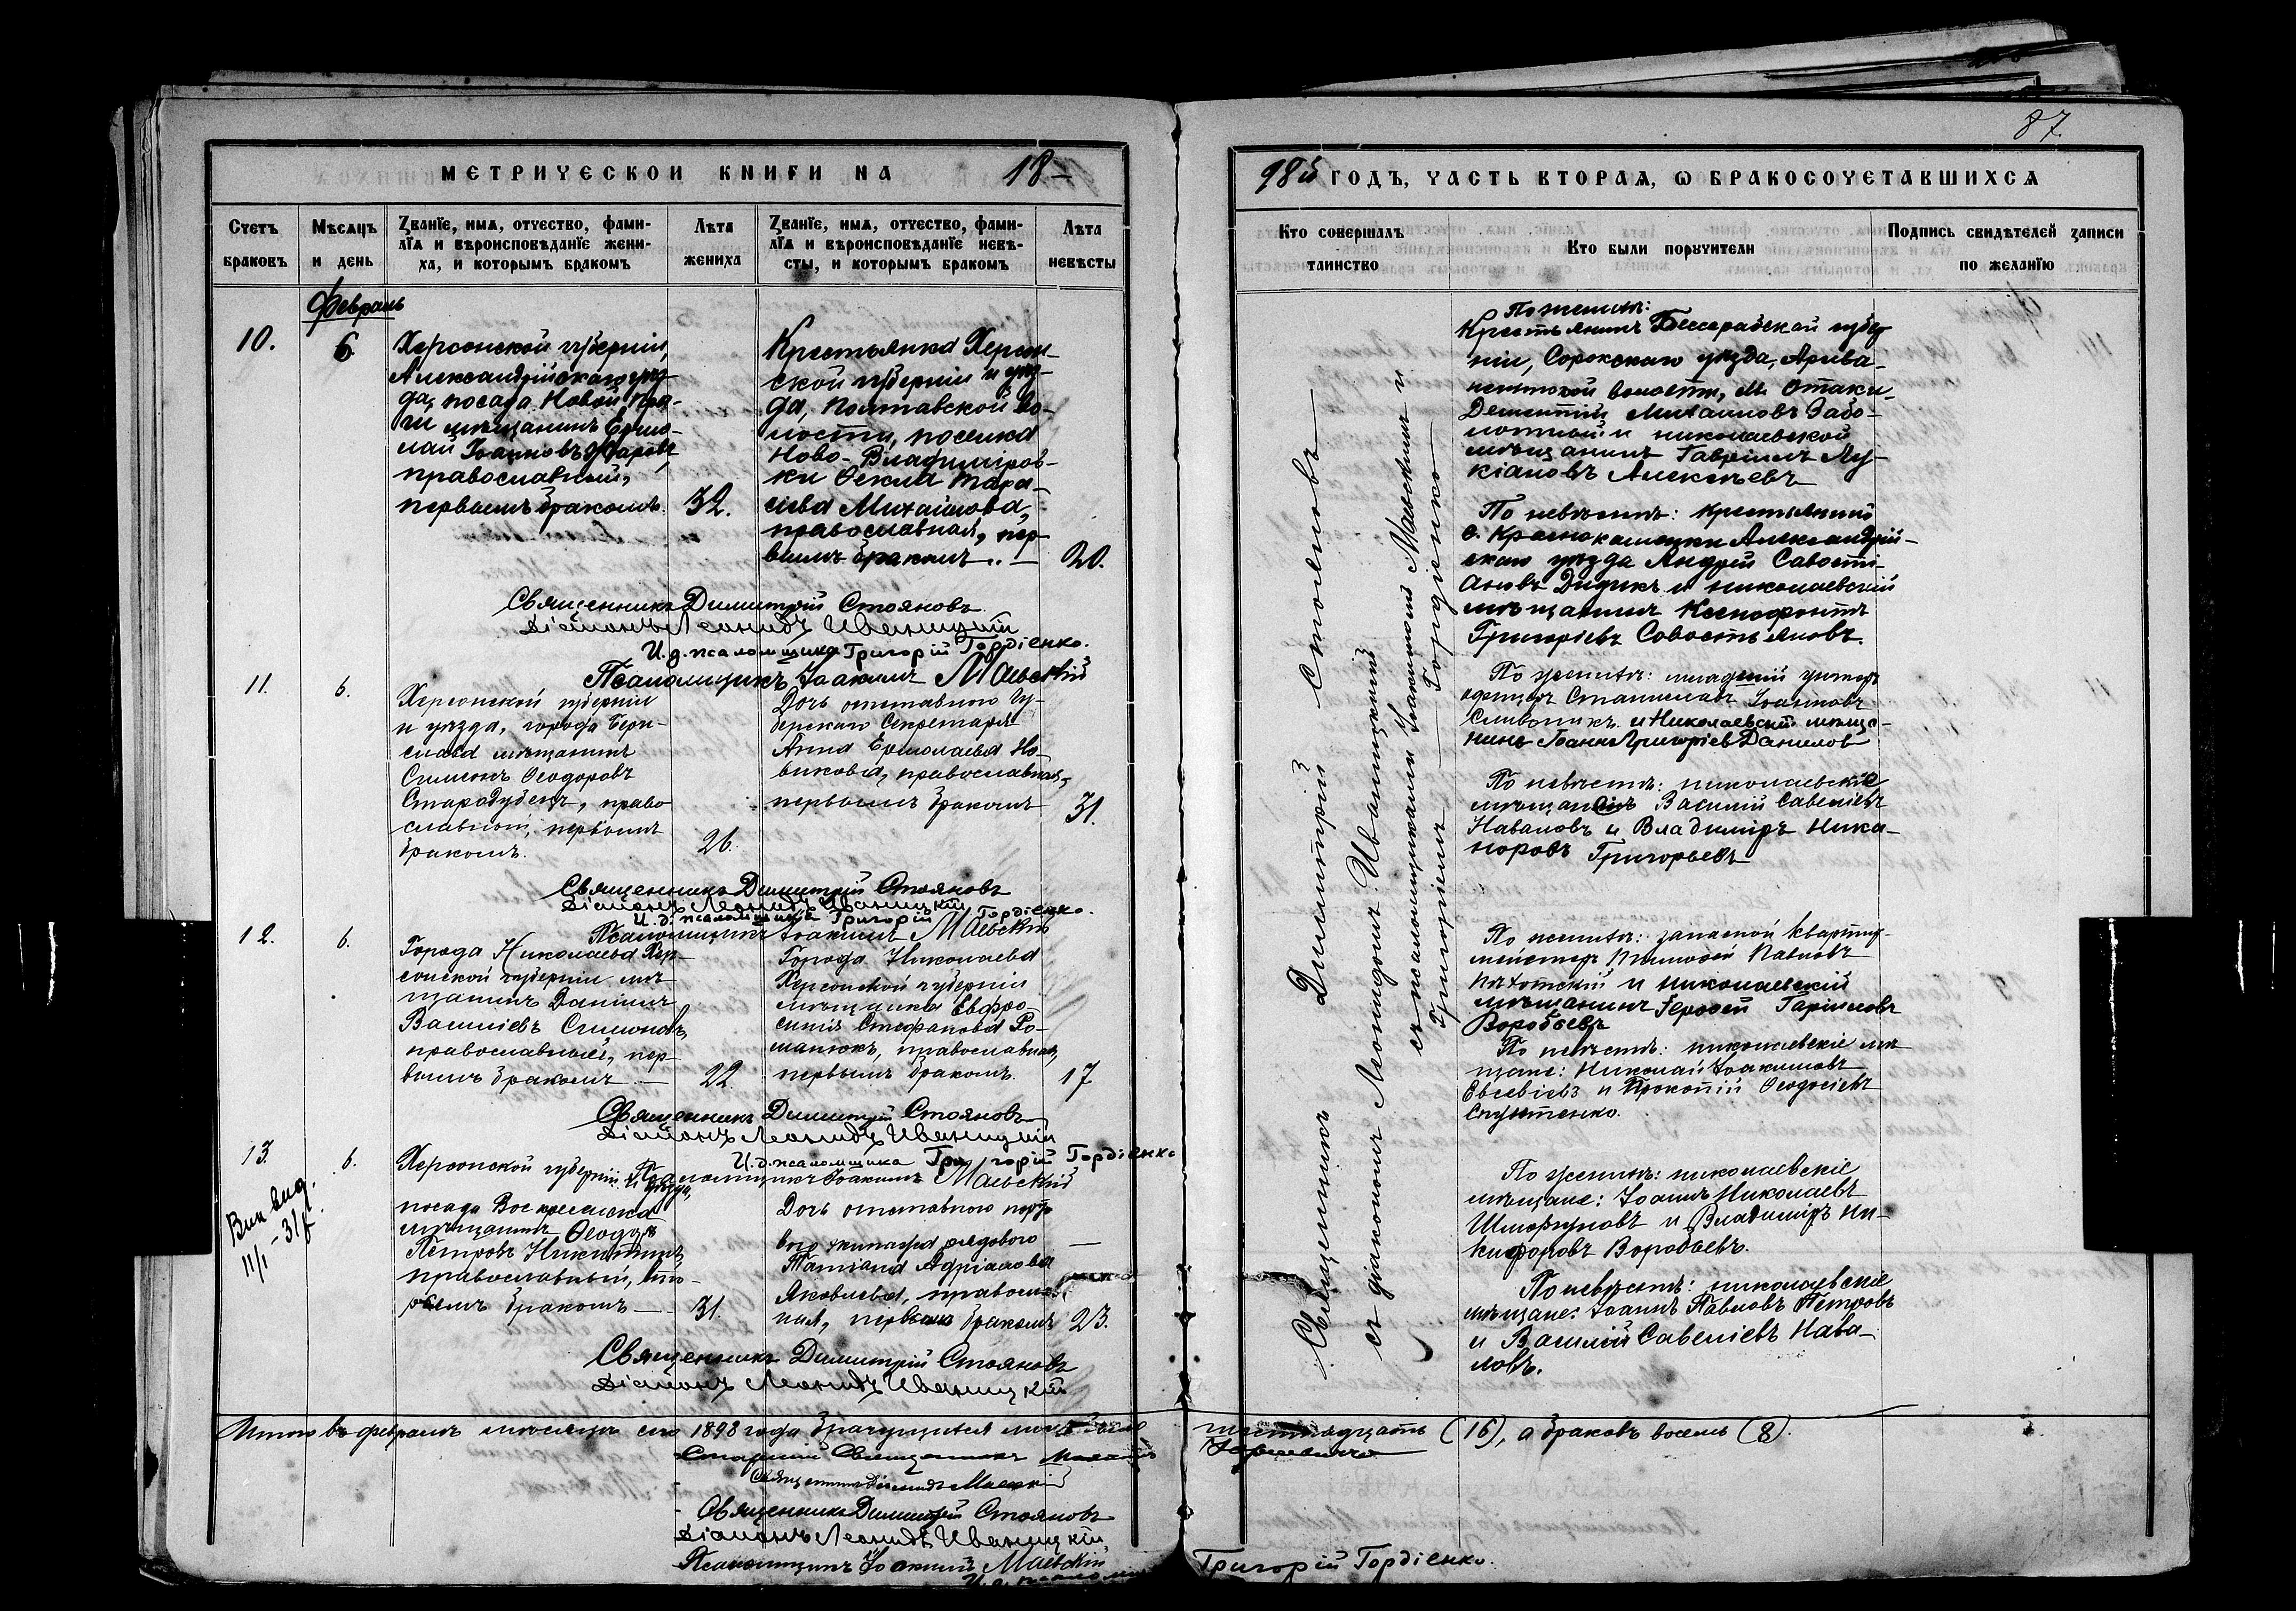 87
МЕТРИЧЕСКОЙ КНИГИ НА 18
98й ГОДЪ, ЧАСТЬ ВТОРАЯ, О БРАКОСОЧЕТАВШИХСЯ
Счетъ браковъ
Мѣсяцъ и день
Званіе, имя, отчество, фами-
лія и вѣроисповѣданіе жени-
ха, и которымъ бракомъ
Лѣта жениха
Званіе, имя, отчество, фами-
лія и вѣроисповѣданіе невѣ-
сты, и которымъ бракомъ
Лѣта невѣсты
Кто совершалъ таинство
Кто были поручители
Подпись свидѣтелей записи по желанію
Февраль
10.
6.
Херсонской губерніи,
Александрійскаго уѣз-
да, посада Новой Пра-
ги мѣщанинъ Ермо-
лай Іоанновъ
православный,
первымъ бракомъ.
32.
Крестьянка Херсон-
ской губерніи и уѣз-
да, Полтавской во-
лости, поселка
Ново-Владиміров-
ки Ѳекла Тара-
сіева Михайлова,
православная, пер
вымъ бракомъ
20.
По женихѣ:
Крестьянинъ Бессарабской губер
ніи, Сорокскаго уѣзда,
волости, м. Отаки
Дементій Михаиловъ Забо-
лотный и николаевской
мѣщанинъ Гавріилъ Лу-
кіановъ Алексѣевъ
По невѣстѣ: крестьянинъ
с. Краснокаменки Александрій-
скаго уѣзда Андрей Савости-
ановъ Дидикъ и николаевскій
мѣщанинъ Ксенофонтъ
Григоріевъ Савостьяновъ.
Священникъ Димитрій Стояновъ
Діаконъ Леонидъ Иваницкій
И. д. псаломщика Григорій Гордіенко.
Псаломщикъ Іоакимъ Маевскій
11.
6.
Херсонской губерніи
и уѣзда, города Бери-
слава мѣщанинъ
Симеонъ Ѳеодоровъ
Стародубецъ, право
славный, первымъ
бракомъ.
26.
Дочь отставного Гу-
бернскаго Секретаря
Анна Ермолаева Но-
викова, православная,
первымъ бракомъ
31.
По женихѣ: младшій унтеръ
офицеръ Станиславъ Іоанновъ
и Николаевскій мѣща-
нинъ Іоаннъ Григоріев Данилов
По невѣстѣ: николаевскіе
мѣщане Василій Савеліевъ
Наваловъ и Владиміръ Ника-
норовъ Григорьевъ
Священникъ Димитрій Стояновъ
Діаконъ Леонидъ Иваницкій
И. д. псаломщика Григорій Гордіенко.
Псаломщикъ Іоакимъ Маевскій
12.
6.
Города Николаева Хер-
сонской губерніи мѣ-
щанинъ Даніилъ
Василіевъ Симоновъ,
православный, пер-
вымъ бракомъ
22.
Города Николаева
Херсонской губерніи
мѣщанка Евфро-
синія Стефанова Ро-
манюкъ, православная,
первымъ бракомъ.
17
По женихѣ: запасной квартир-
мейстеръ Тимофей Павловъ
и николаевскій
мѣщанинъ Іерофей Гавриловъ
Воробьевъ
По невѣстѣ: николаевскіе мѣ
щане: Николай Іоакимовъ
Евсевіевъ и Прокопій Ѳеодосіевъ
Священникъ Димитрій Стояновъ
Діаконъ Леонидъ Иваницкій
И. д. псаломщика Григорій Гордіенко
Псаломщикъ Іоакимъ Маевскій
13.
6.
11/I-31
Херсонской губерніи и уѣзда,
посада Воскресенска
мѣщанинъ Ѳеодоръ
Петровъ Никитинъ,
православный, вто-
рымъ бракомъ
31.
Дочь отставного порто
вого экипажа рядового
Татіана Адріанова
Яковлева, православ
ная, первымъ бракомъ
23.
По женихѣ: николаевскіе
мѣщане: Іоаннъ Николаевъ
и Владиміръ Ни-
кифоровъ Воробьевъ.
По невѣстѣ: николаевскіе
мѣщане: Іоаннъ Павловъ Петровъ
и Василій Савеліевъ Нава-
ловъ.
Священникъ Димитрій Стояновъ
Діаконъ Леонидъ Иваницкій
Священникъ Димитрій Стояновъ
съ діакономъ Леонидомъ Иваницкимъ
съ псаломщиками Іоакимомъ Маевскимъ и
Григоріемъ Гордіенко
Итого въ февралѣ мѣсяцѣ сего 1898 года брачущихся шестнадцать (16), а браковъ восемь (8).
Старшій Священникъ
Священникъ Маевскій
Священникъ Димитрій Стояновъ
Діаконъ Леонидъ Иваницкій
Псаломщикъ Іоакимъ Маевскій
И. д. псаломщ Григорій Гордіенко.